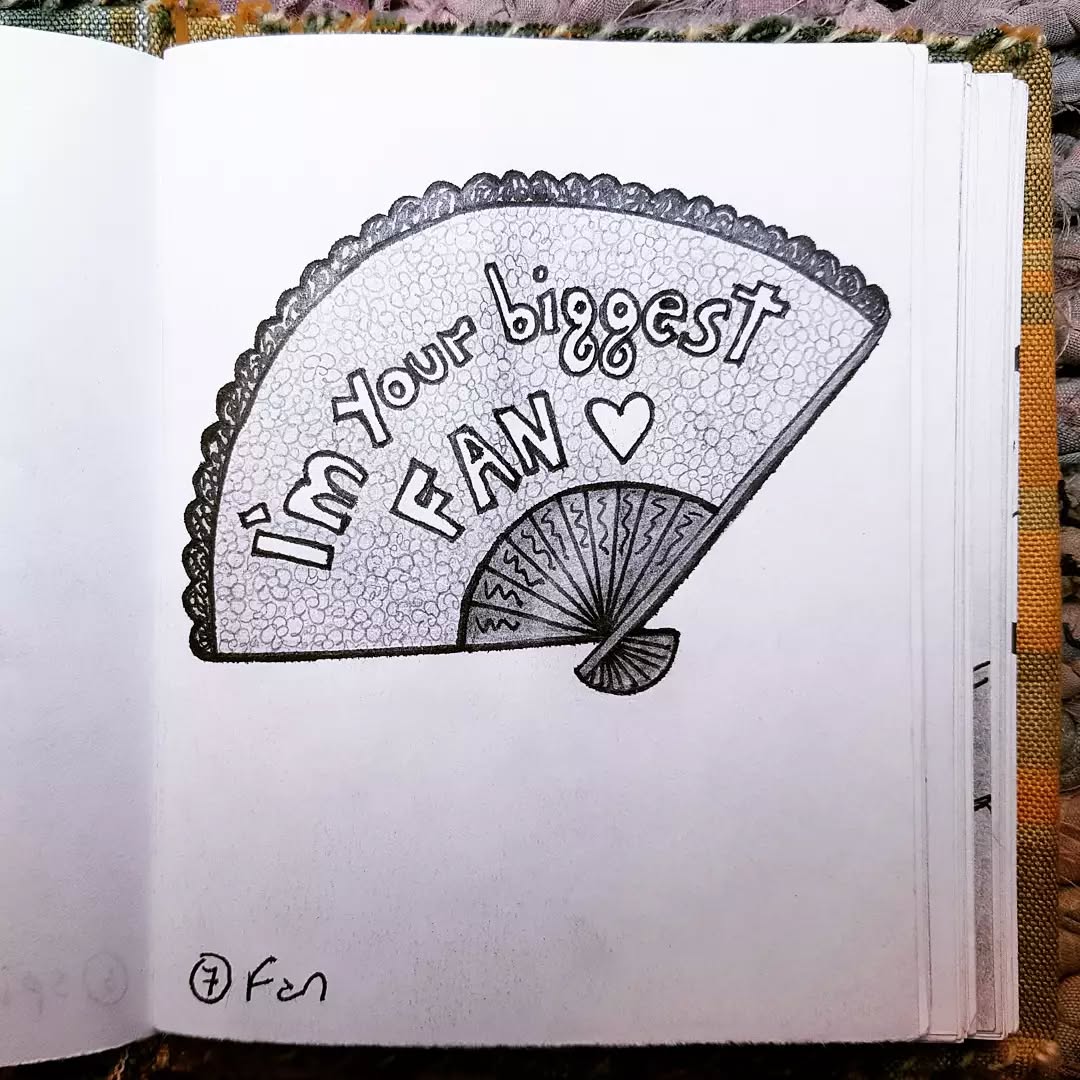 I'm your biggest
FAN ♡
⑦ Fan